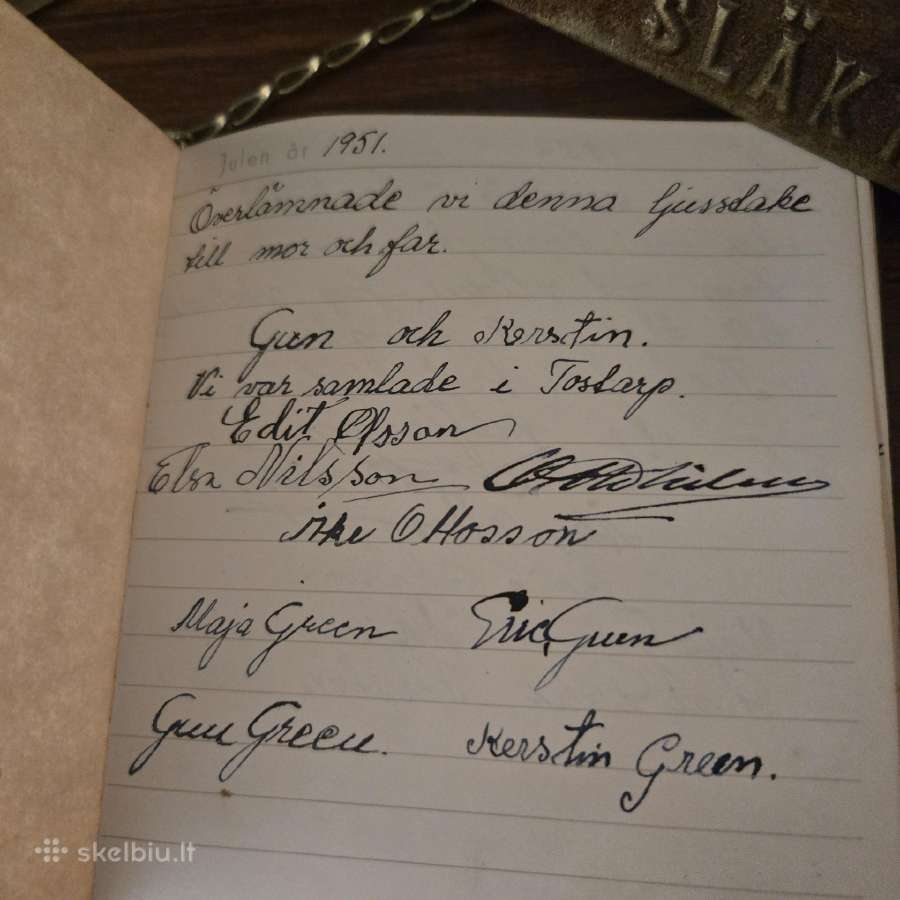 SLÄK
Julen år 1951.
Överlämnade vi denna ljusstake
till mor och far.
Gun och Kerstin.
Vi var samlade i Tostarp.
Edit Olsson
Elsa Nilsson
Åke Ottosson
Maja Green Eric Green
Gun Green. Kerstin Green.
skelbiu.lt